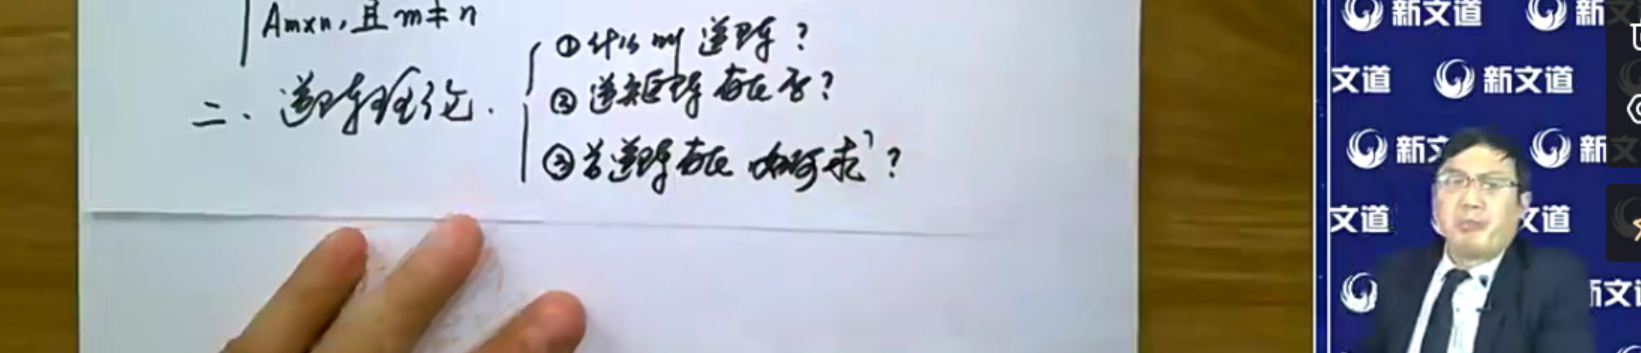 Am×n,且 m≠n
二、逆阵理论.
①什么叫逆阵?
②逆矩阵存在否?
③若逆阵存在如何求?
新文道
新
文道
新文道
新文
新文
文道
文道
新文道